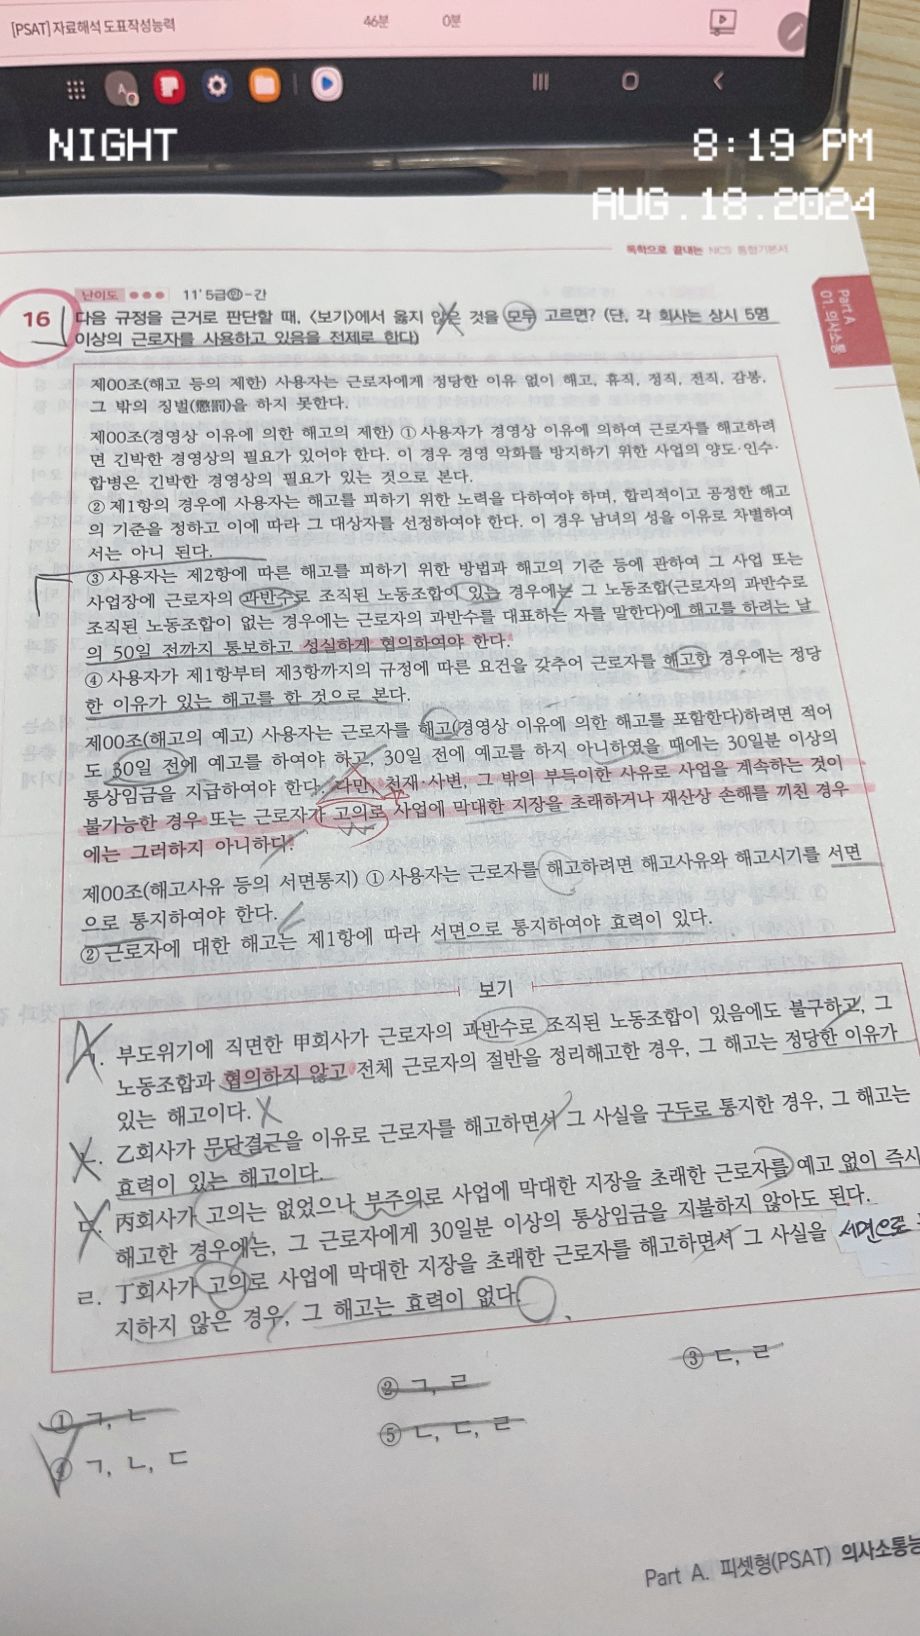 [PSAT] 자료해석 도표작성능력 46분 0분
NIGHT 8:19 PM
AUG.18.2024
독학으로 끝내는 NCS 통합기본서
Part A
01. 의사소통
난이도 11' 5급㉑-간
16 다음 규정을 근거로 판단할 때, 〈보기〉에서 옳지 않은 것을 모두 고르면? (단, 각 회사는 상시 5명
이상의 근로자를 사용하고 있음을 전제로 한다)
제00조(해고 등의 제한) 사용자는 근로자에게 정당한 이유 없이 해고, 휴직, 정직, 전직, 감봉,
그 밖의 징벌(懲罰)을 하지 못한다.
제00조(경영상 이유에 의한 해고의 제한) ① 사용자가 경영상 이유에 의하여 근로자를 해고하려
면 긴박한 경영상의 필요가 있어야 한다. 이 경우 경영 악화를 방지하기 위한 사업의 양도·인수·
합병은 긴박한 경영상의 필요가 있는 것으로 본다.
② 제1항의 경우에 사용자는 해고를 피하기 위한 노력을 다하여야 하며, 합리적이고 공정한 해고
의 기준을 정하고 이에 따라 그 대상자를 선정하여야 한다. 이 경우 남녀의 성을 이유로 차별하여
서는 아니 된다.
③ 사용자는 제2항에 따른 해고를 피하기 위한 방법과 해고의 기준 등에 관하여 그 사업 또는
사업장에 근로자의 과반수로 조직된 노동조합이 있는 경우에는 그 노동조합(근로자의 과반수로
조직된 노동조합이 없는 경우에는 근로자의 과반수를 대표하는 자를 말한다)에 해고를 하려는 날
의 50일 전까지 통보하고 성실하게 협의하여야 한다.
④ 사용자가 제1항부터 제3항까지의 규정에 따른 요건을 갖추어 근로자를 해고한 경우에는 정당
한 이유가 있는 해고를 한 것으로 본다.
제00조(해고의 예고) 사용자는 근로자를 해고(경영상 이유에 의한 해고를 포함한다)하려면 적어
도 30일 전에 예고를 하여야 하고, 30일 전에 예고를 하지 아니하였을 때에는 30일분 이상의
통상임금을 지급하여야 한다. 다만, 천재·사변, 그 밖의 부득이한 사유로 사업을 계속하는 것이
불가능한 경우 또는 근로자가 고의로 사업에 막대한 지장을 초래하거나 재산상 손해를 끼친 경우
에는 그러하지 아니하다.
제00조(해고사유 등의 서면통지) ① 사용자는 근로자를 해고하려면 해고사유와 해고시기를 서면
으로 통지하여야 한다.
② 근로자에 대한 해고는 제1항에 따라 서면으로 통지하여야 효력이 있다.
보기
ㄱ. 부도위기에 직면한 甲회사가 근로자의 과반수로 조직된 노동조합이 있음에도 불구하고, 그
노동조합과 협의하지 않고 전체 근로자의 절반을 정리해고한 경우, 그 해고는 정당한 이유가
있는 해고이다.
ㄴ. 乙회사가 무단결근을 이유로 근로자를 해고하면서 그 사실을 구두로 통지한 경우, 그 해고는
효력이 있는 해고이다.
ㄷ. 丙회사가 고의는 없었으나 부주의로 사업에 막대한 지장을 초래한 근로자를 예고 없이 즉시
해고한 경우에는, 그 근로자에게 30일분 이상의 통상임금을 지불하지 않아도 된다.
ㄹ. 丁회사가 고의로 사업에 막대한 지장을 초래한 근로자를 해고하면서 그 사실을 서면으로
지하지 않은 경우, 그 해고는 효력이 없다.
① ㄱ, ㄴ ② ㄱ, ㄹ ③ ㄷ, ㄹ
④ ㄱ, ㄴ, ㄷ ⑤ ㄴ, ㄷ, ㄹ
Part A. 피셋형(PSAT) 의사소통능